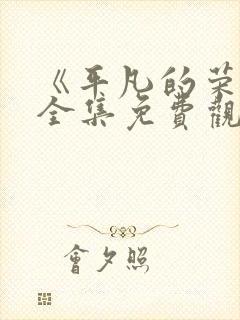 《平凡的荣
全集免費觀
會夕照